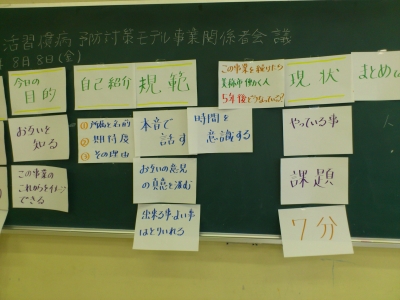 活習慣病 予防対策モデル事業関係者会議
8月8日(金)
今日の
目的
お互いを
知る
この事業の
これからをイメージ
できる
自己紹介
①所属と名前
②期待度
③その理由
規範
本音で
話す
お互いの意見
の真意を汲む
出来る事よい事
はとりいれる
時間を
意識する
この事業を続けたら
美祢市働く人
5年後どうなっている?
現状
やっている事
課題
7分
まとめ